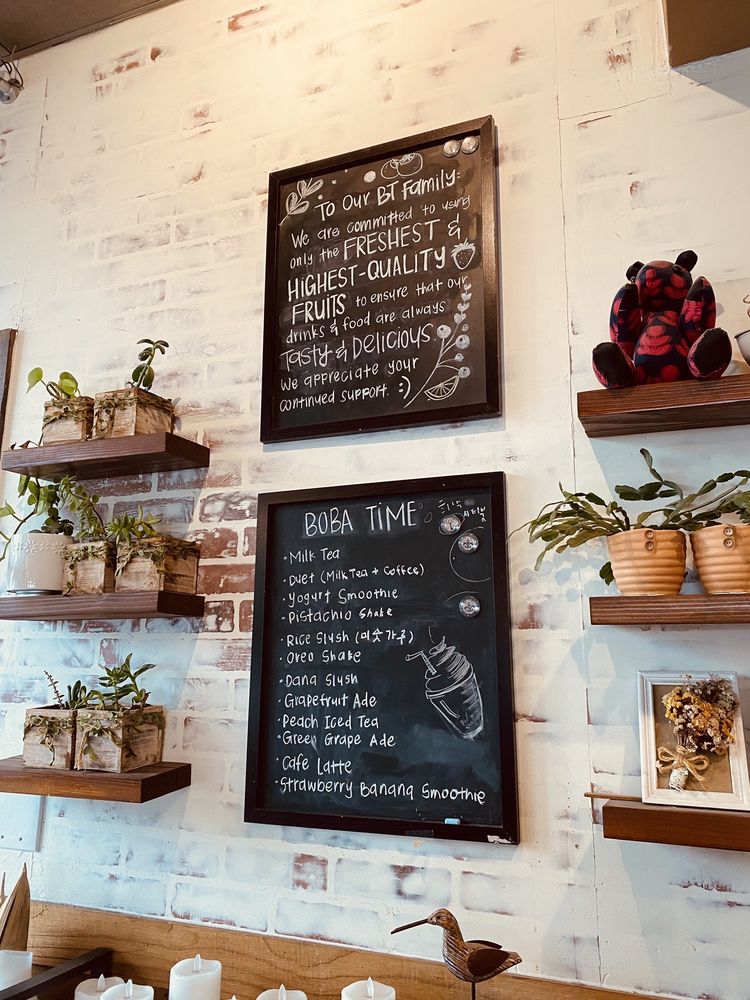 To Our BT Family:
We are committed to using
only the FRESHEST &
HIGHEST-QUALITY
FRUITS to ensure that our
drinks & food are always
Tasty & Delicious.
We appreciate your
continued support. :)
BOBA TIME
• Milk Tea
• Duet (Milk Tea + Coffee)
• Yogurt Smoothie
• Pistachio Shake
• Rice Slush (미숫가루)
• Oreo Shake
• Dana Slush
• Grapefruit Ade
• Peach Iced Tea
• Green Grape Ade
• Cafe Latte
• Strawberry Banana Smoothie